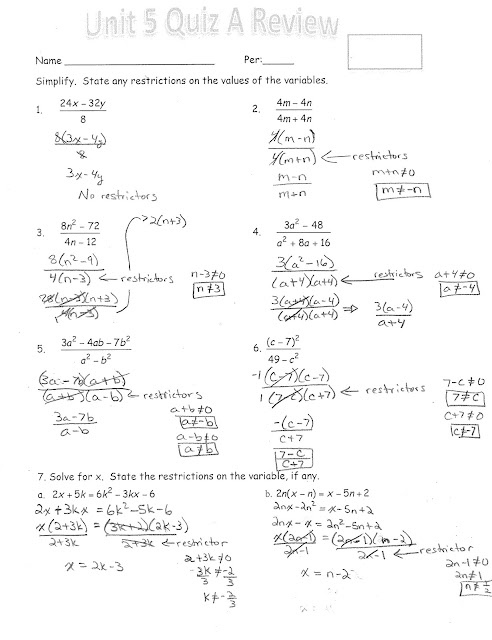 Unit 5 Quiz A Review
Name Per:
Simplify. State any restrictions on the values of the variables.
1. (24x – 32y)/8
8(3x-4y)/8
3x-4y
No restrictors
2. (4m – 4n)/(4m + 4n)
4(m-n)/4(m+n) ← restrictors
m+n≠0
(m-n)/(m+n)
m≠-n
3. (8n² – 72)/(4n – 12)
→ 2(n+3)
8(n²-9)/4(n-3) ← restrictors
n-3≠0
n≠3
28(n-3)(n+3)/4(n-3)
4. (3a² – 48)/(a² + 8a + 16)
3(a²-16)/(a+4)(a+4) ← restrictors
a+4≠0
a≠-4
3(a+4)(a-4)/(a+4)(a+4) ⇒ 3(a-4)/(a+4)
5. (3a² – 4ab – 7b²)/(a² – b²)
(3a-7b)(a+b)/(a+b)(a-b) ← restrictors
(3a-7b)/(a-b)
a+b≠0
a≠-b
a-b≠0
a≠b
6. (c – 7)²/(49 – c²)
-1(c-7)(c-7)/1(7-c)(c+7) ← restrictors
7-c≠0
7≠c
c+7≠0
c≠-7
-(c-7)/(c+7)
(7-c)/(c+7)
7. Solve for x. State the restrictions on the variable, if any.
a. 2x + 5k = 6k² – 3kx – 6
2x+3kx = 6k²-5k-6
x(2+3k)/(2+3k) = (3k+2)(2k-3)/(2+3k) ← restrictor
x = 2k-3
2+3k≠0
3k≠-2
3 3
k≠-2/3
b. 2n(x – n) = x – 5n + 2
2nx-2n² = x-5n+2
2nx-x = 2n²-5n+2
x(2n-1)/(2n-1) = (2n-1)(n-2)/(2n-1) ← restrictor
x = n-2
2n-1≠0
2n≠1
n≠1/2